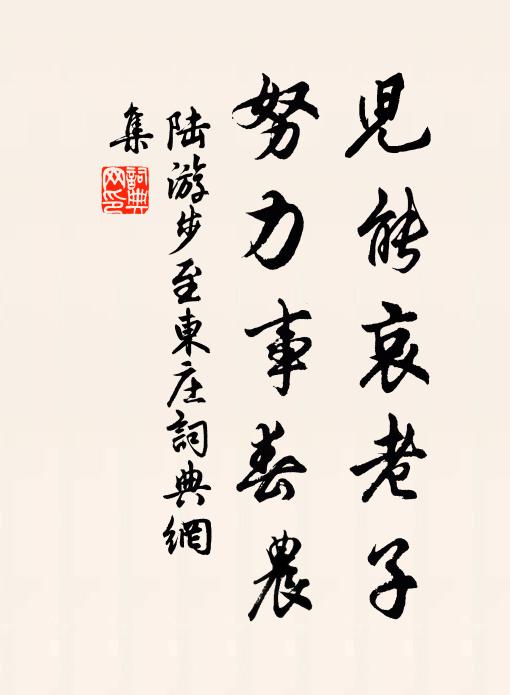 兒能哀老子
努力事春農
陸游步至東庄詞典網
集
詞典
网印